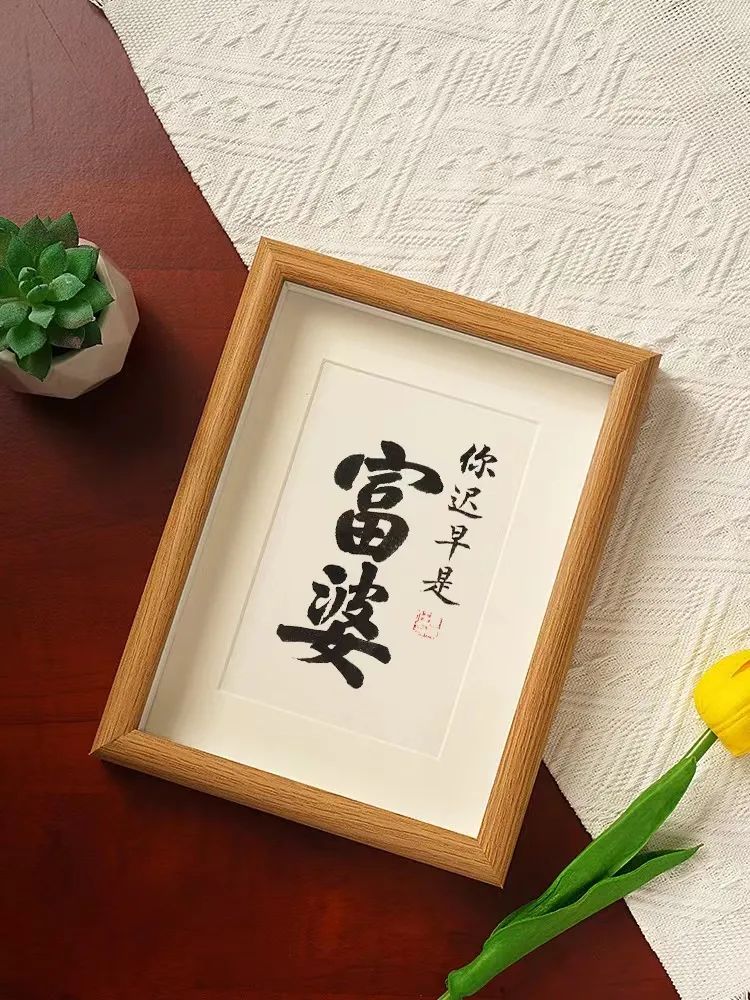 你迟早是
富婆